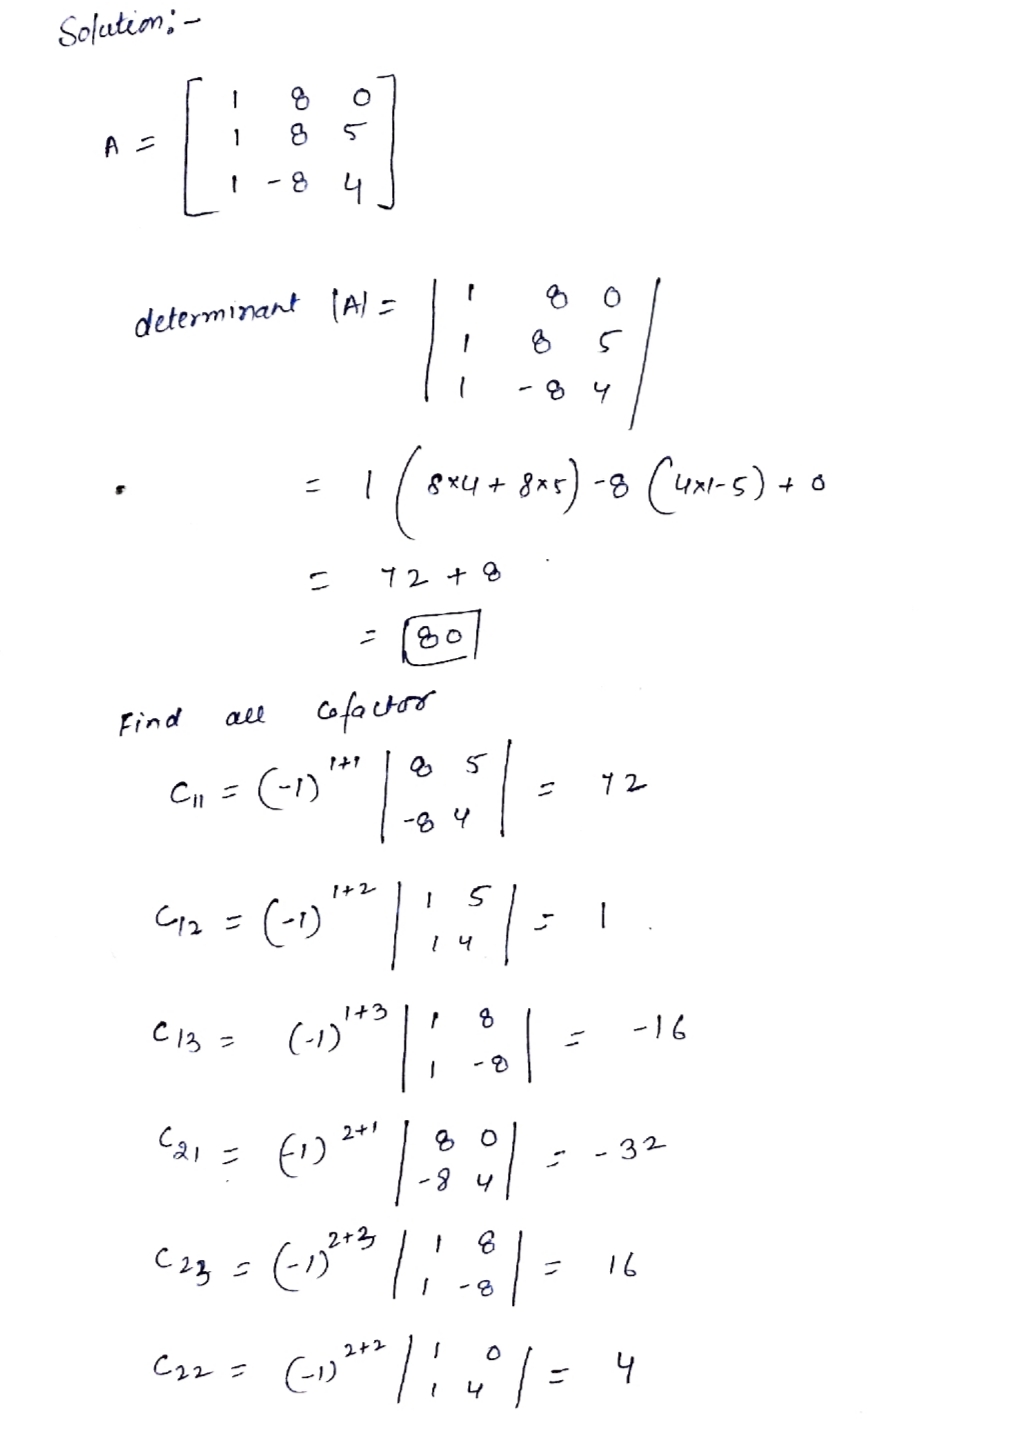 Solution:-
A = [ 1 8 0
1 8 5
1 -8 4 ]
determinant |A| = | 1 8 0
1 8 5
1 -8 4 |
= 1 ( 8×4 + 8×5 ) -8 ( 4×1-5 ) + 0
= 72 + 8
= 80
Find all cofactor
C11 = (-1)^1+1 | 8 5
-8 4 | = 72
C12 = (-1)^1+2 | 1 5
1 4 | = 1
C13 = (-1)^1+3 | 1 8
1 -8 | = -16
C21 = (-1)^2+1 | 8 0
-8 4 | = -32
C23 = (-1)^2+3 | 1 8
1 -8 | = 16
C22 = (-1)^2+2 | 1 0
1 4 | = 4